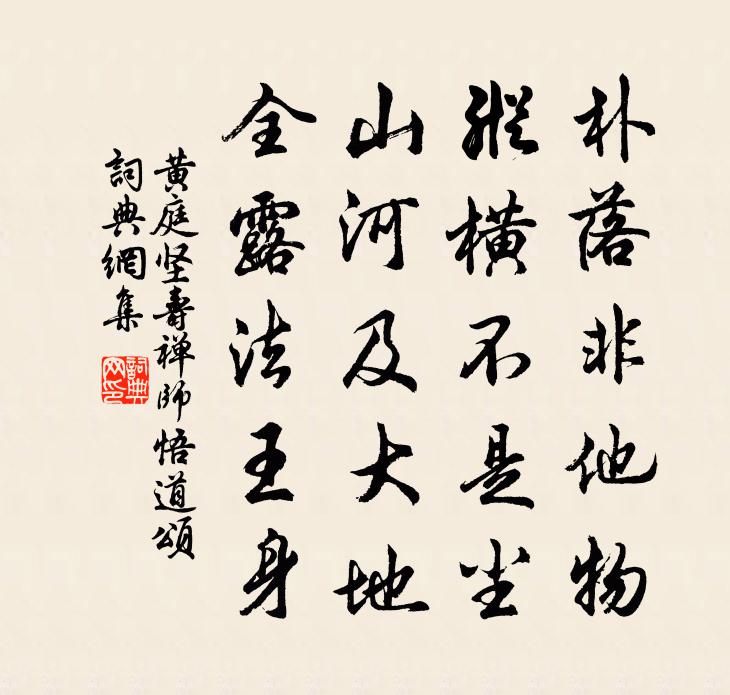 朴落非他物
縱橫不是尘
山河及大地
全露法王身
黄庭坚壽禅师悟道頌
詞典網集
詞典
网印